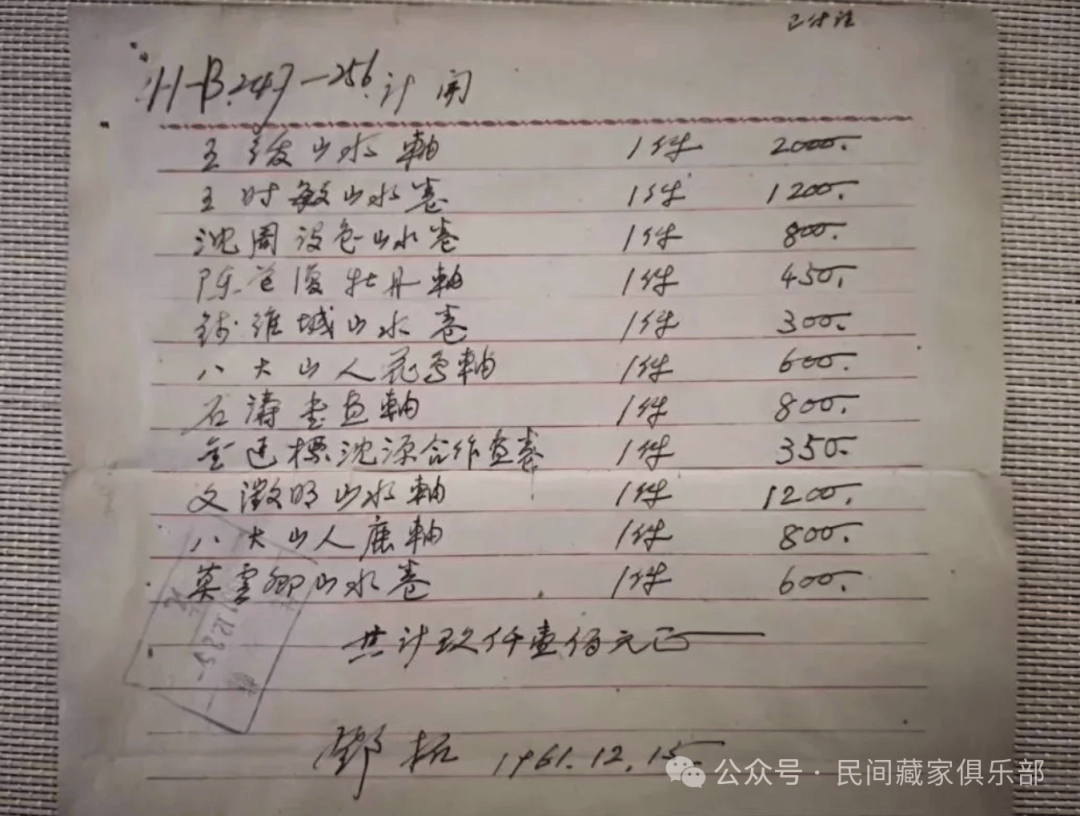 已付注
H-B.247-256. 计开
王绂山水軸 1件 2000.
王时敏山水卷 1件 1200.
沈周设色山水卷 1件 800.
陈道復牡丹軸 1件 450.
钱维城山水卷 1件 300.
八大山人花鸟軸 1件 600.
石濤书画軸 1件 800.
金廷標沈源合作画卷 1件 350.
文徵明山水軸 1件 1200.
八大山人鹿軸 1件 800.
莫雲卿山水卷 1件 600.
共计玖仟壹佰元正
鄧拓 1961.12.15
公众号·民间藏家俱乐部